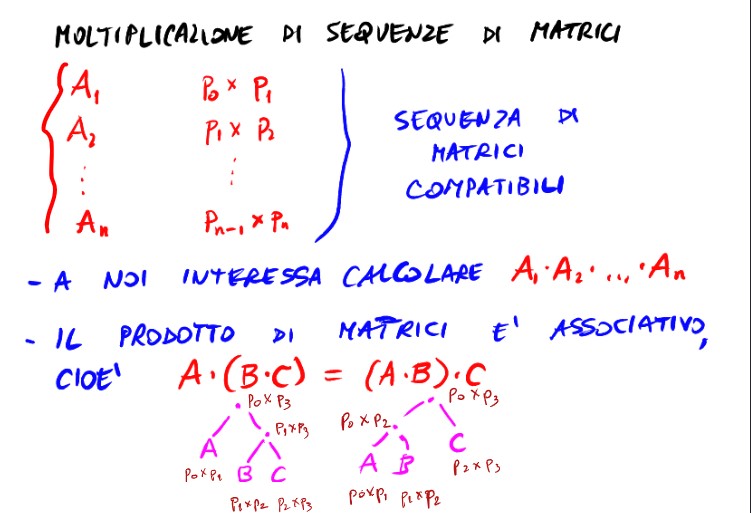 MOLTIPLICAZIONE DI SEQUENZE DI MATRICI
A₁ P₀ × P₁
A₂ P₁ × P₂
⋮ ⋮
Aₙ Pₙ₋₁ × Pₙ
SEQUENZA DI
MATRICI
COMPATIBILI
- A NOI INTERESSA CALCOLARE A₁·A₂· ... ·Aₙ
- IL PRODOTTO DI MATRICI E' ASSOCIATIVO,
CIOE' A·(B·C) = (A·B)·C
P₀×P₃
P₁×P₃
A
P₀×P₁
B C
P₁×P₂ P₂×P₃
P₀×P₃
P₀×P₂
A B
P₀×P₁ P₁×P₂
C
P₂×P₃